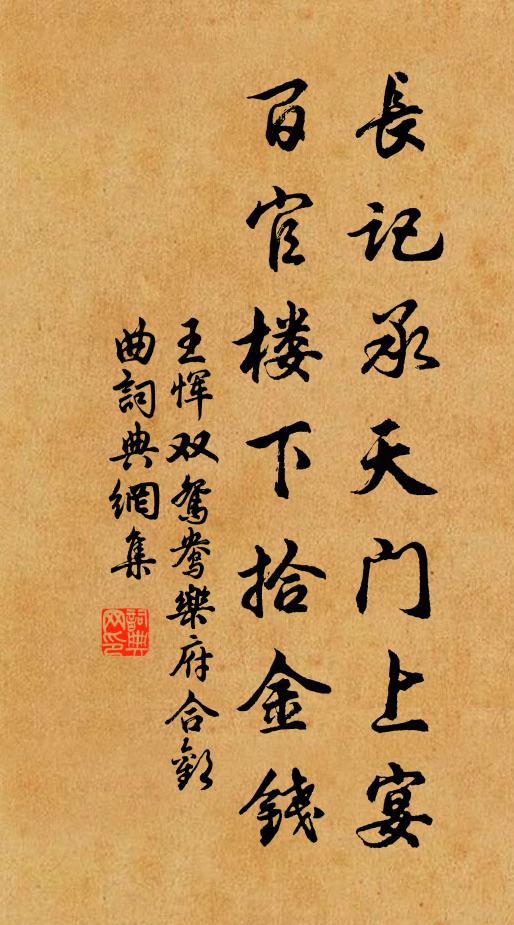 長记承天门上宴
百官楼下拾金錢
王恽双鴛鴦樂府合歡
曲詞典網集
詞典
网印